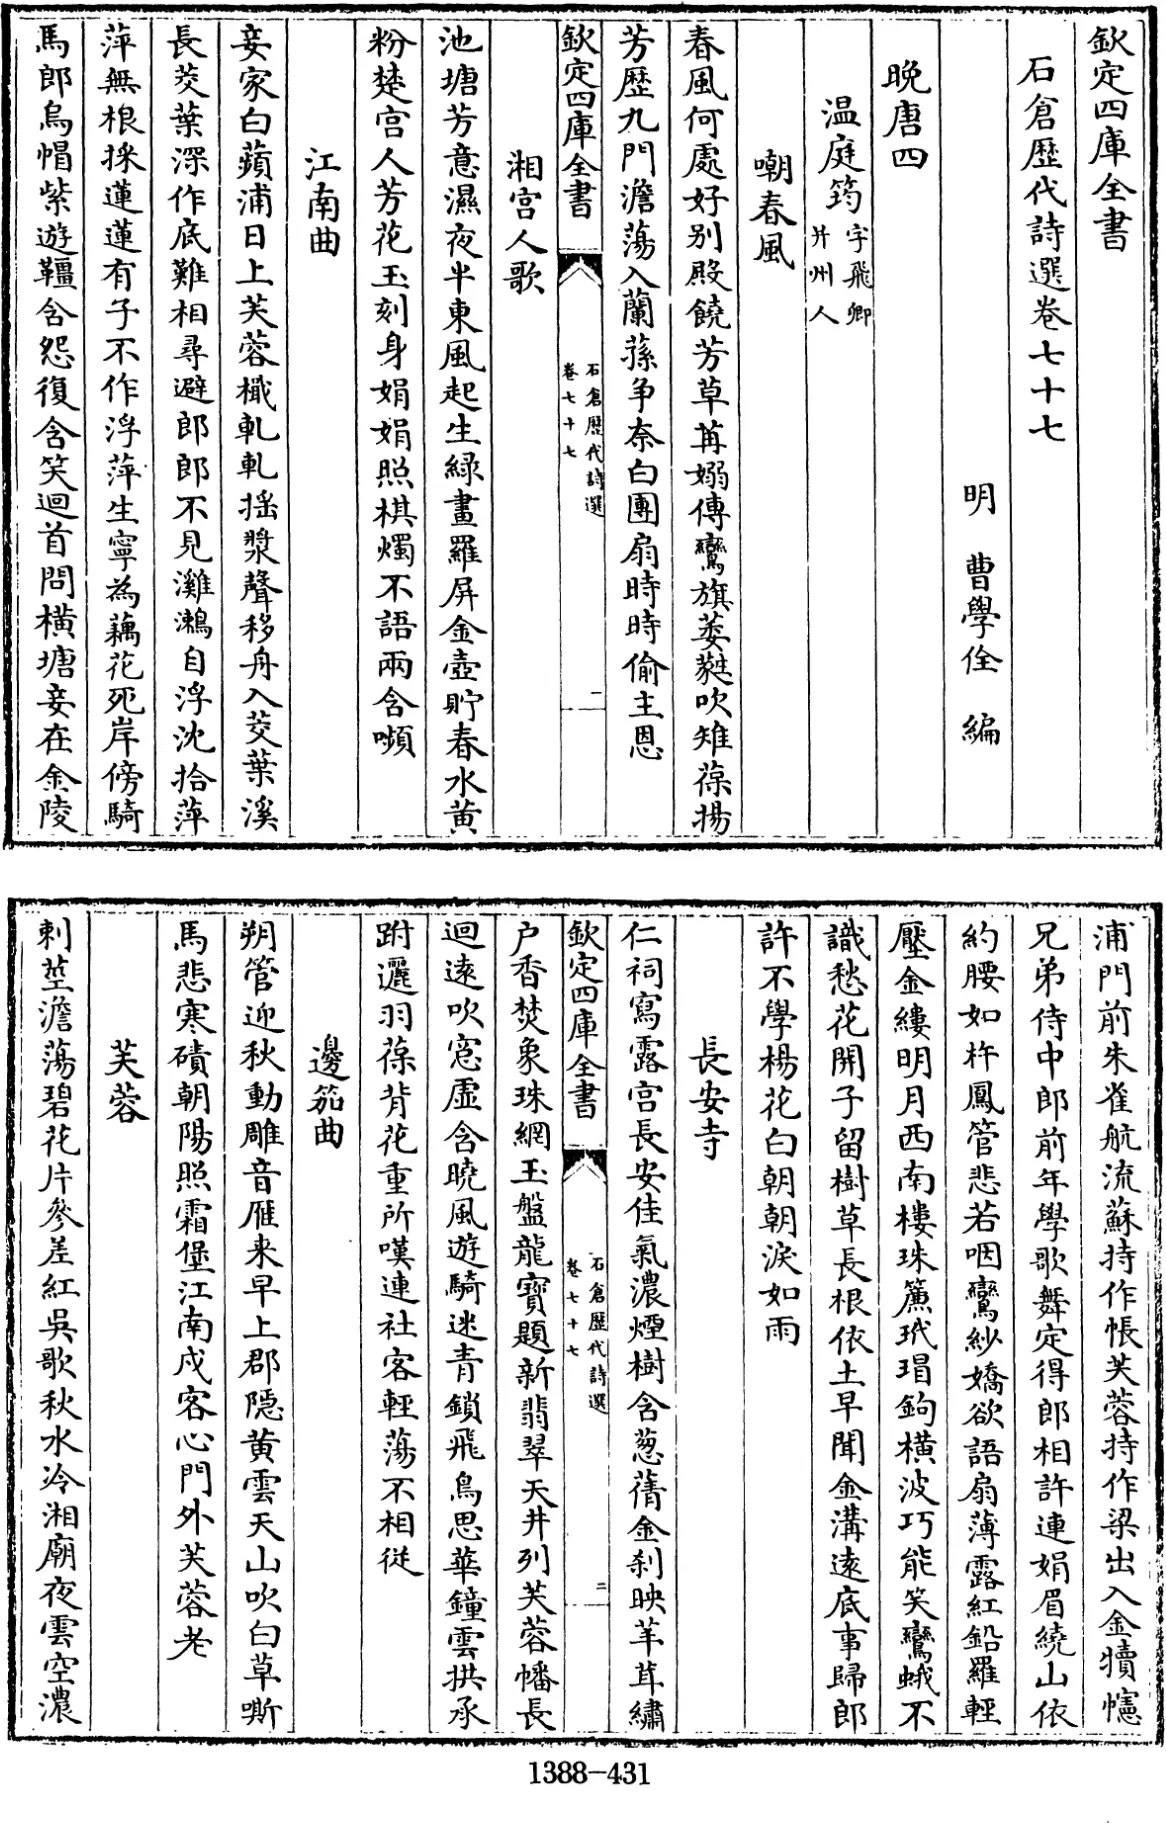 欽定四庫全書
石倉歷代詩選卷七十七
明　曹學佺　編
晚唐四
温庭筠字飛卿
并州人
嘲春風
春風何處好别殿饒芳草苒嫋傳鸞旗萎蕤吹雉葆揚
芳歷九門澹蕩入蘭蓀争奈白團扇時時偷主恩
欽定四庫全書
石倉歷代詩選
卷七十七
二
湘宫人歌
池塘芳意濕夜半東風起生緑畫羅屏金壺貯春水黄
粉楚宫人芳花玉刻身娟娟照棋燭不語兩含嚬
江南曲
妾家白蘋浦日上芙蓉檝軋軋揺槳聲移舟入茭葉溪
長茭葉深作底難相尋避郎郎不見㶉鶒自浮沈拾萍
萍無根採蓮蓮有子不作浮萍生寧為藕花死岸傍騎
馬郎烏帽紫遊韁含怨復含笑迴首問横塘妾在金陵
浦門前朱雀航流蘇持作帳芙蓉持作梁出入金犢幰
兄弟侍中郎前年學歌舞定得郎相許連娟眉繞山依
約腰如杵鳳管悲若咽鸞紗嬌欲語扇薄露紅鉛羅輕
壓金縷明月西南樓珠簾玳瑁鉤横波巧能笑彎蛾不
識愁花開子留樹草長根依土早聞金溝遠底事歸郎
許不學楊花白朝朝淚如雨
長安寺
仁祠寫露宫長安佳氣濃煙樹含葱蒨金刹映丰茸繡
户香焚象珠網玉盤龍寶題新翡翠天井列芙蓉幡長
欽定四庫全書
石倉歷代詩選
卷七十七
二
迴遠吹窓虛含曉風遊騎迷青鎖飛鳥思華鐘雲拱承
跗邐羽葆背花重所嘆連社客輕蕩不相從
邊笳曲
朔管迎秋動雕音雁来早上郡隠黄雲天山吹白草嘶
馬悲寒磧朝陽照霜堡江南戍客心門外芙蓉老
芙蓉
刺莖澹蕩碧花片參差紅吳歌秋水冷湘廟夜雲空濃
1388-431